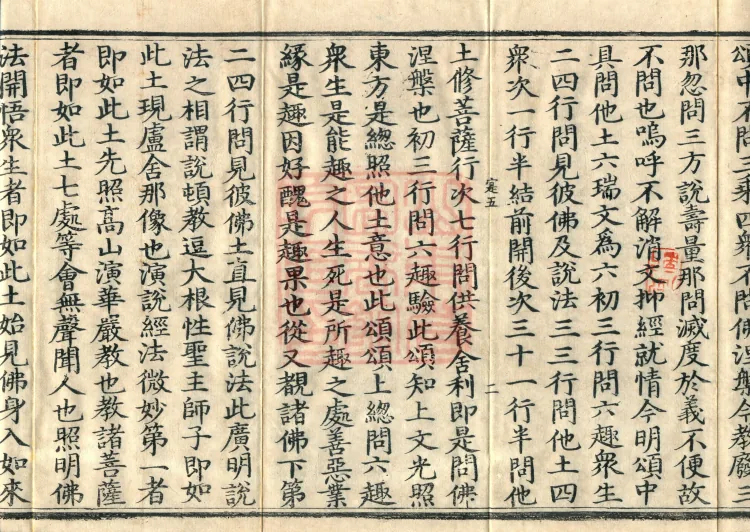 頌中不問三乘四衆不問佛涅槃今教廢三
那忽問三方說壽量那問滅度於義不便故
不問也嗚呼不解消文抑經就情今明頌中
具問他土六瑞文爲六初三行問六趣衆生
二四行問見彼佛及說法三三行問他土四
衆次一行半結前開後次三十一行半問他
寔五
二
土修菩薩行次七行問供養舍利即是問佛
涅槃也初三行問六趣驗此頌知上文光照
東方是總照他土意也此頌頌上總問六趣
衆生是能趣之人生死是所趣之處善惡業
緣是趣因好醜是趣果也從又覩諸佛下第
二四行問見彼佛土直見佛說法此廣明說
法之相謂說頓教逗大根性聖主師子即如
此土現盧舍那像也演說經法微妙第一者
即如此土先照高山演華嚴教也教諸菩薩
者即如此土七處等會無聲聞人也照明佛
法開悟衆生者即如此土始見佛身入如來